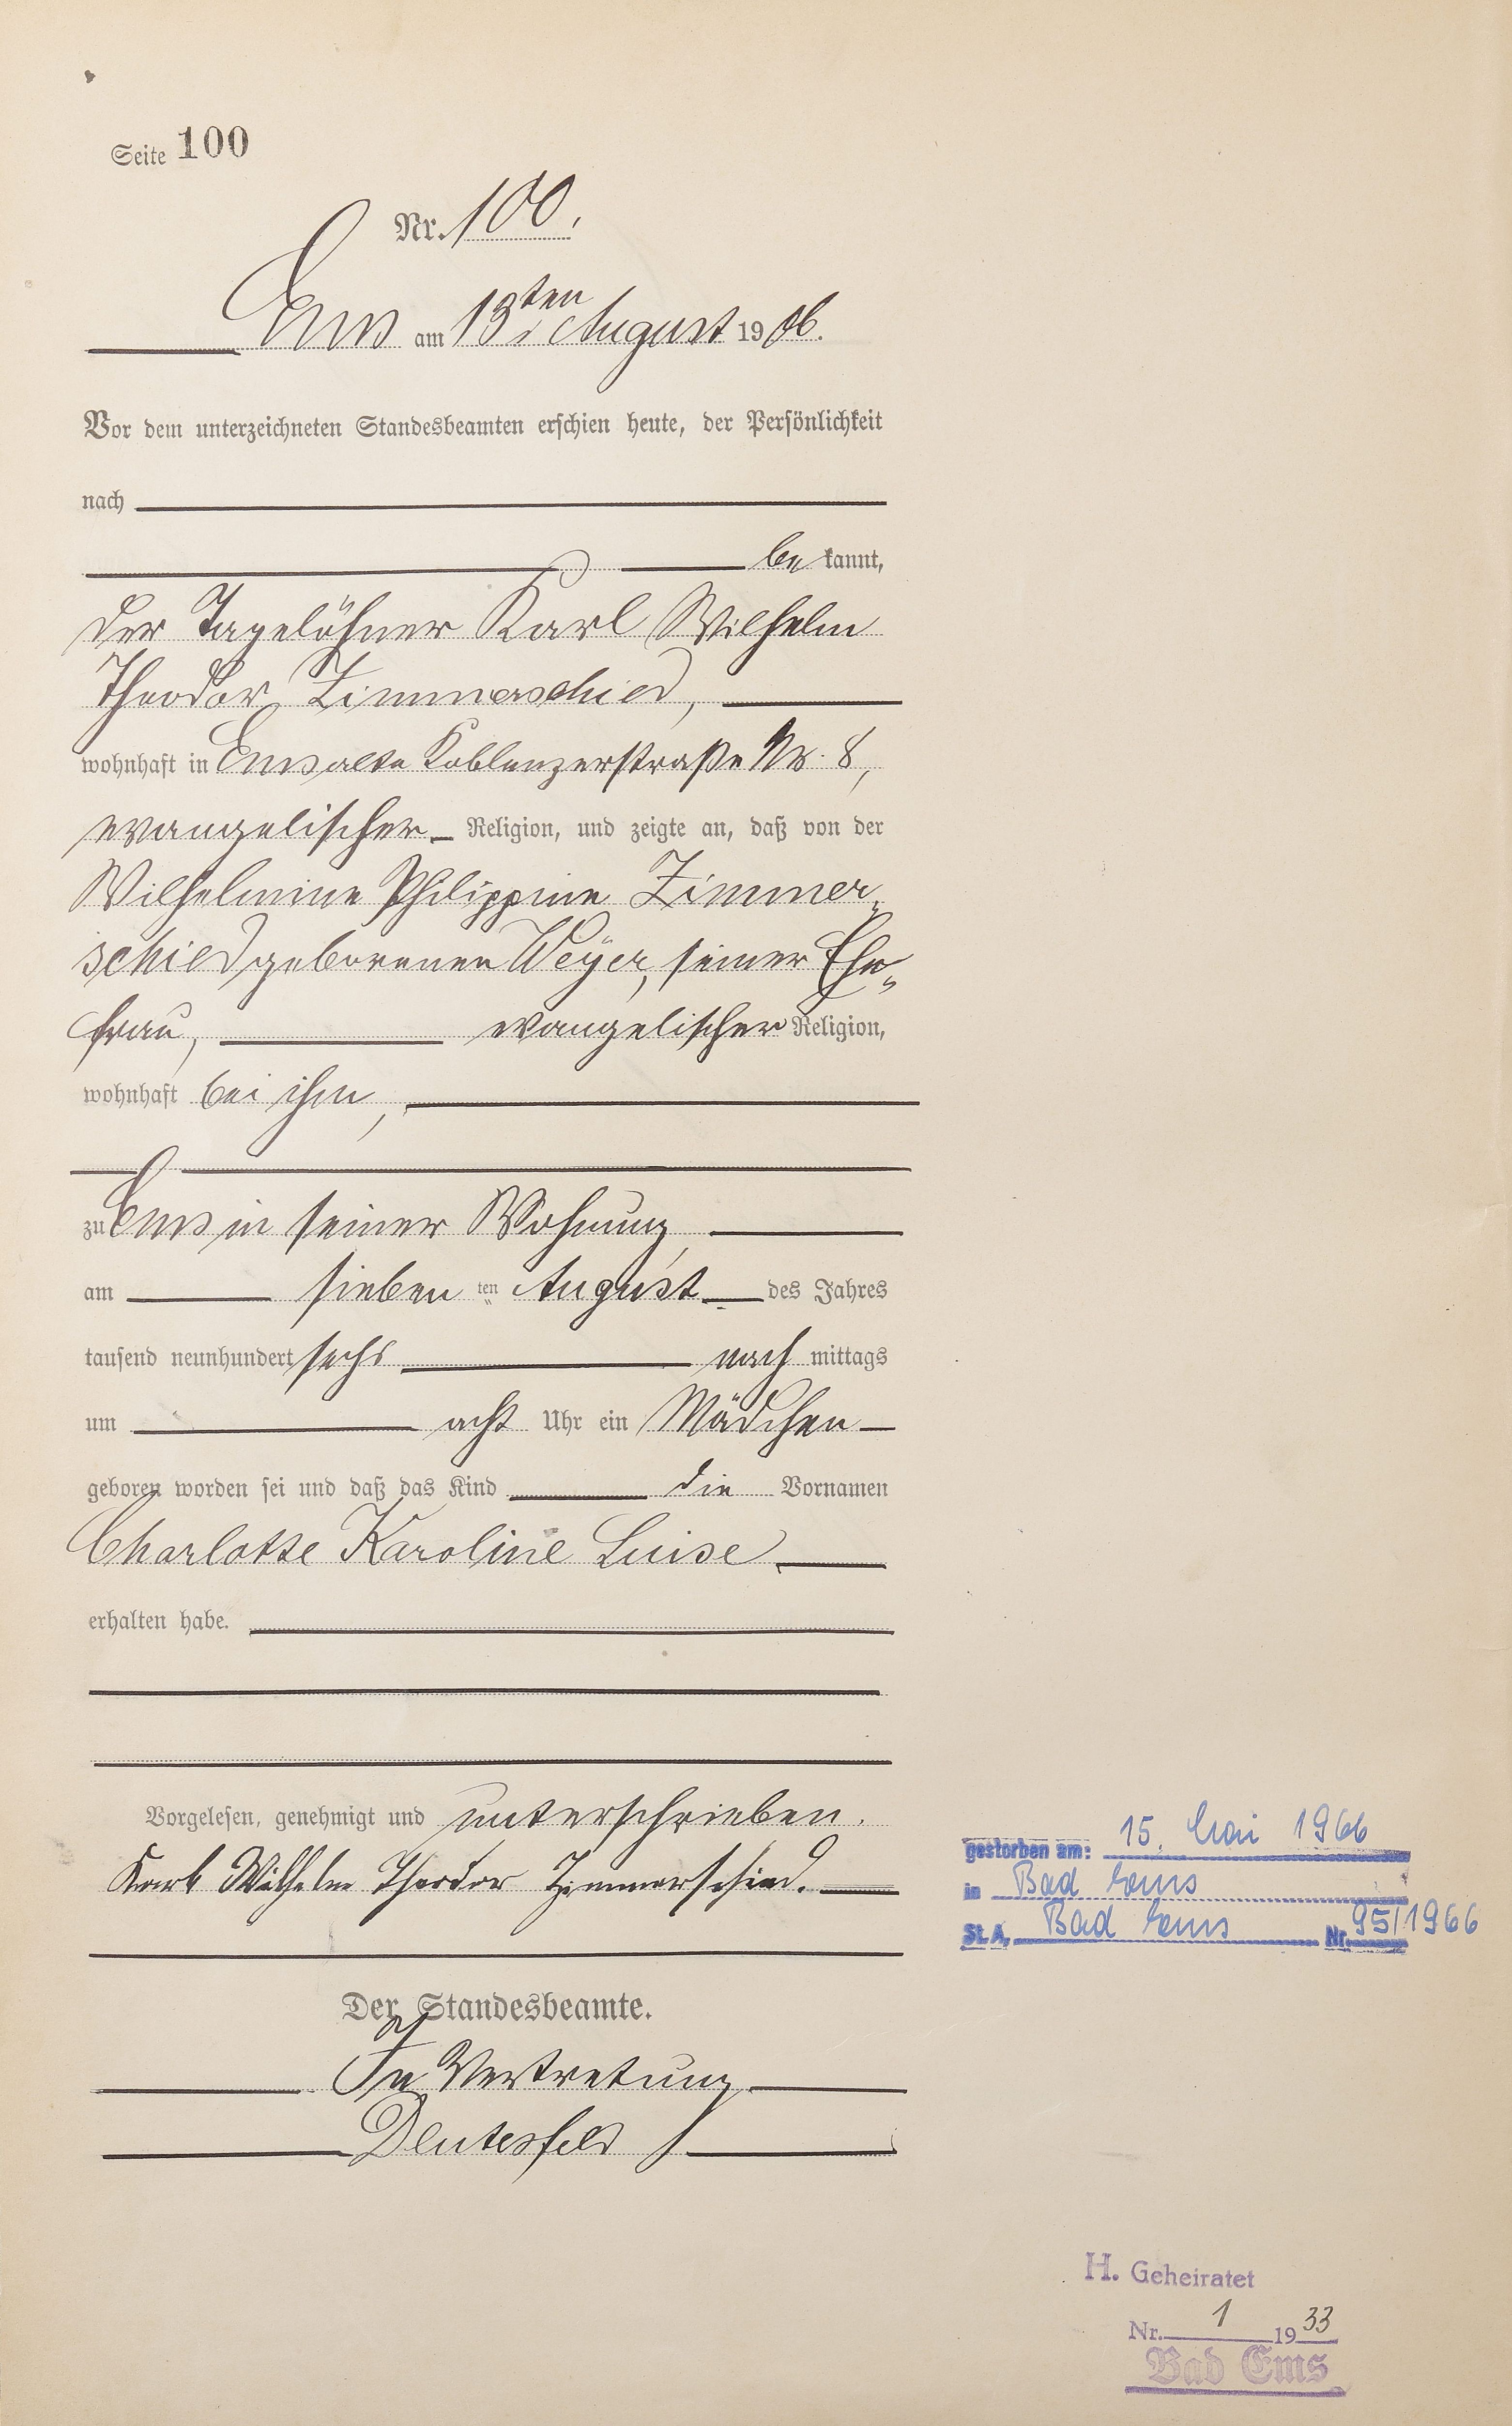 Seite 100
Nr. 100.
Ems am 13ten August 1906.
Vor dem unterzeichneten Standesbeamten erschien heute, der Persönlichkeit
nach
bekannt,
der Tagelöhner Karl Wilhelm
Theodor Zimmerschied,
wohnhaft in Ems alte Koblenzerstraße Nr. 8,
evangelischer Religion, und zeigte an, daß von der
Wilhelmine Philippine Zimmer-
schied geborenen Weyer, seiner Ehe-
frau, evangelischer Religion,
wohnhaft bei ihm,
zu Ems in seiner Wohnung,
am siebenten August des Jahres
tausend neunhundert sechs nachmittags
um acht Uhr ein Mädchen
geboren worden sei und daß das Kind die Vornamen
Charlotte Karoline Luise
erhalten habe.
Vorgelesen, genehmigt und unterschrieben.
Karl Wilhelm Theodor Zimmerschied.
Der Standesbeamte.
In Vertretung
gestorben am: 15. Mai 1966
in Bad Ems
St. A. Bad Ems Nr. 95/1966
H. Geheiratet
Nr. 1 1933
Bad Ems